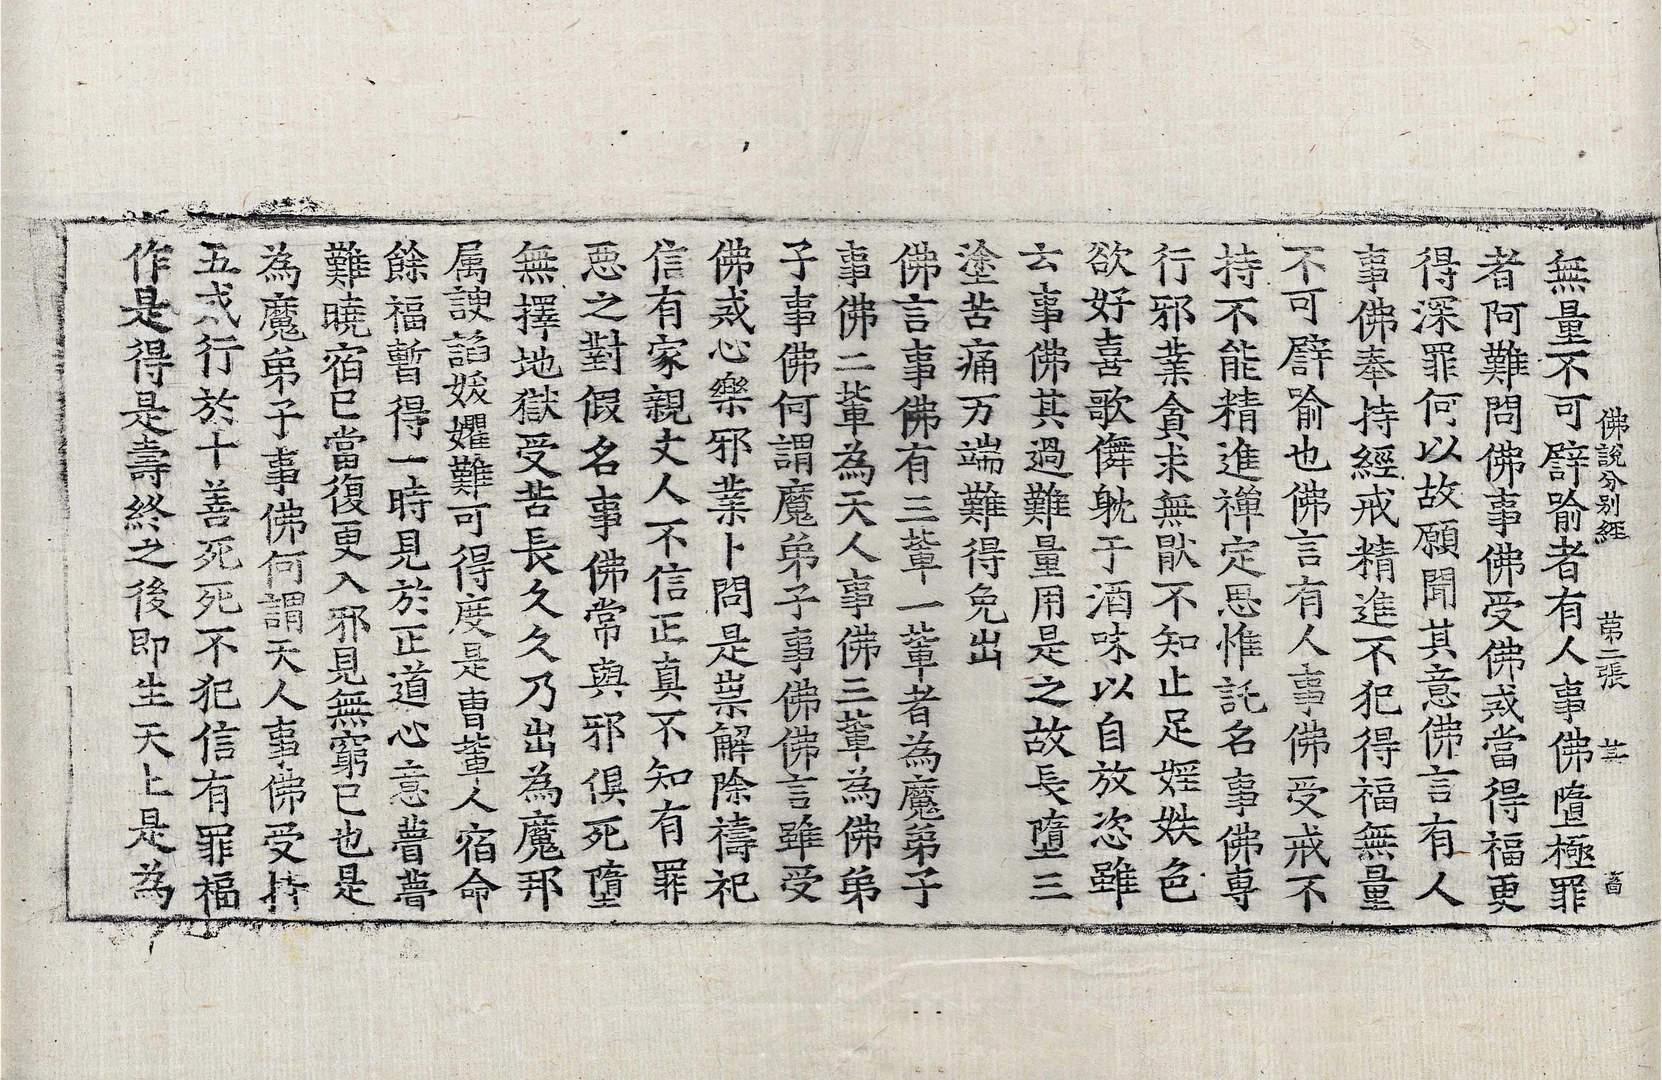 佛說分別經　苐二張　𦬇　啚
無量不可譬喻者有人事佛墮極罪
者阿難問佛事佛受佛戒當得福更
得深罪何以故願聞其意佛言有人
事佛奉持經戒精進不犯得福無量
不可譬喻也佛言有人事佛受戒不
持不能精進禪定思惟託名事佛專
行邪業貪求無猒不知止足婬妷色
欲好喜歌儛躭于酒味以自放恣雖
云事佛其過難量用是之故長墮三
塗苦痛万端難得免出
佛言事佛有三軰一軰者為魔弟子
事佛二軰為天人事佛三軰為佛弟
子事佛何謂魔弟子事佛佛言雖受
佛戒心樂邪業卜問是祟解除禱祀
信有家親丈人不信正真不知有罪
惡之對假名事佛常與邪俱死墮
無擇地獄受苦長久久乃出為魔邪
属諛諂妖孆難可得度是曹軰人宿命
餘福暫得一時見於正道心意瞢瞢
難曉宿已當復更入邪見無窮已也是
為魔弟子事佛何謂天人事佛受持
五戒行於十善死死不犯信有罪福
作是得是壽終之後即生天上是為